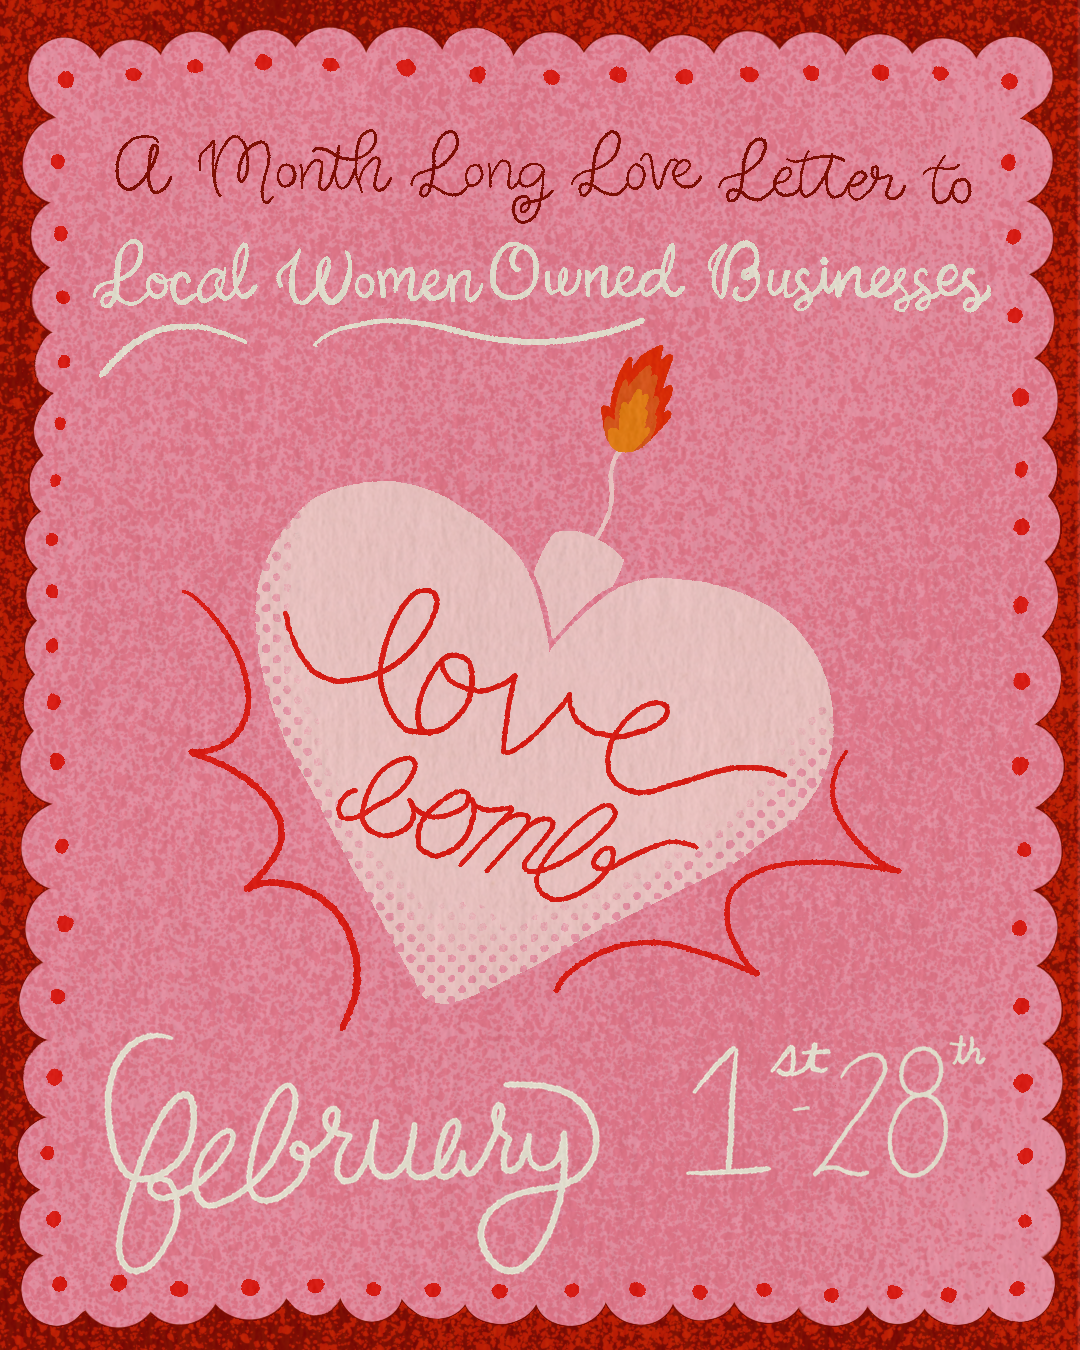 A Month Long Love Letter to
Local Women Owned Businesses
love
bomb
February 1st-28th